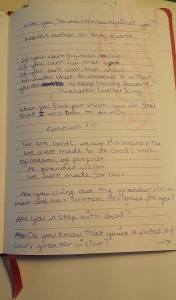 with you, so who can be against you?
Martin Luther King quote
If you can't fly, then run
If you can't run, then walk
If you can't walk, then crawl
but whatever you do
you have to keep moving forward.
Martin Luther King
When you find your vision you will feel
that I was born to do this
Ephesians 2:10
We are God's, we are His masterpiece
we were made to do God's work
of reason, of purpose
A grander vision
We were made for this
Are you living out the grander vision
that God has custom designed for you?
Are you in step with God?
Do you know that you're a piece of
God's greater vision?